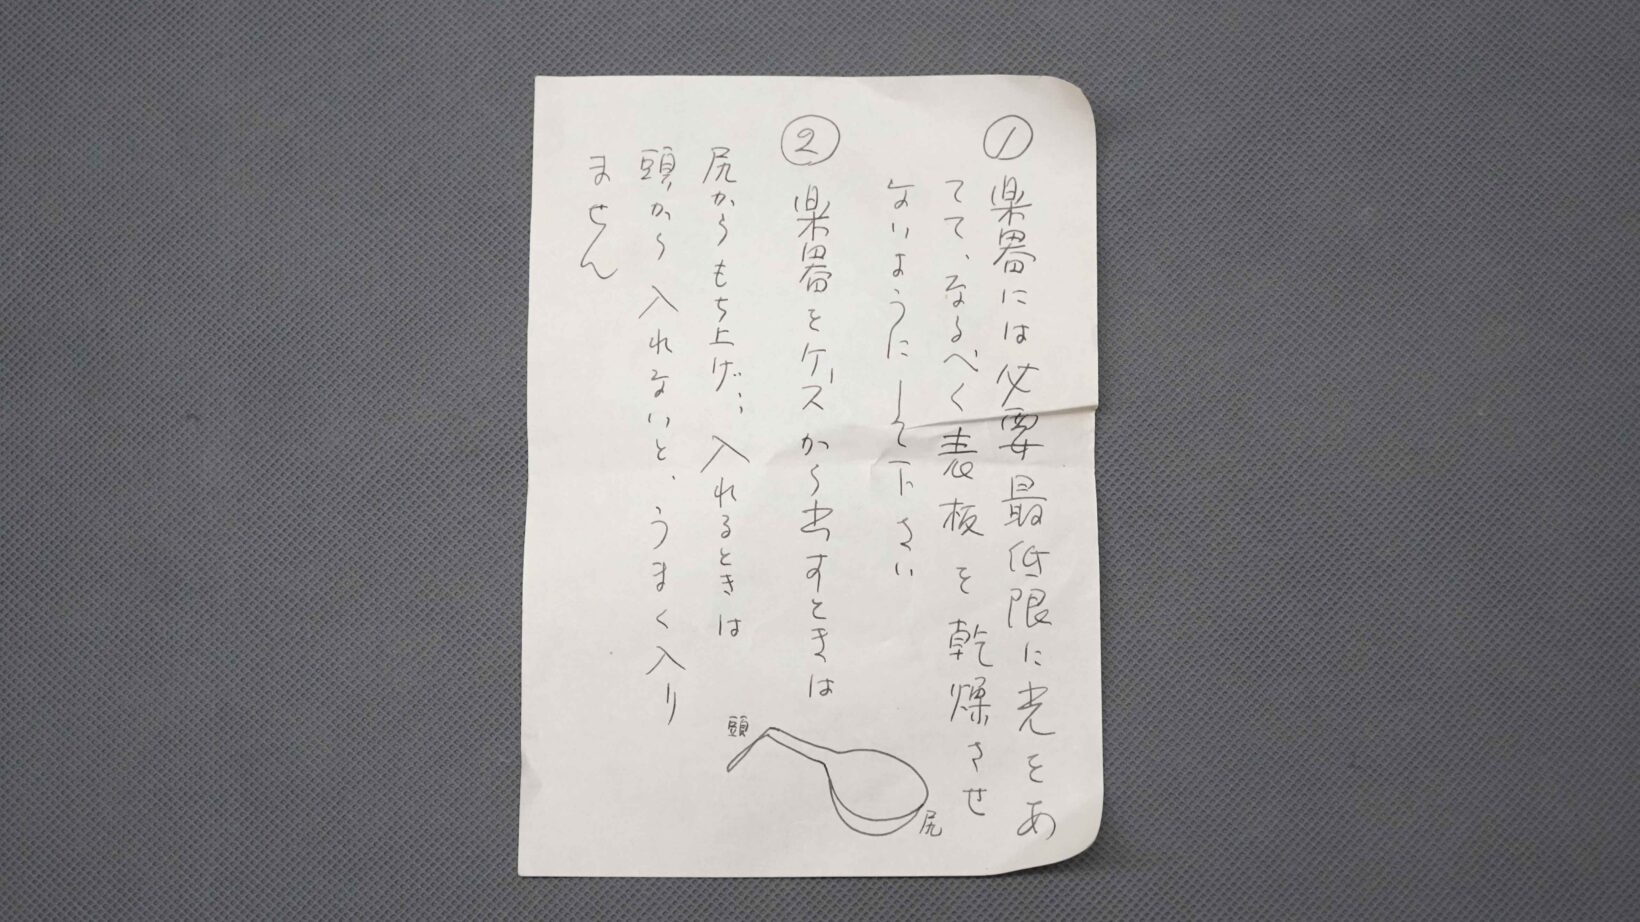 ①楽器には必要最低限に光をあ
てて、なるべく表板を乾燥させ
ないようにして下さい
②楽器をケースから出すときは
尻からもち上げ、入れるときは
頭から入れないと、うまく入り
ません
頭
尻